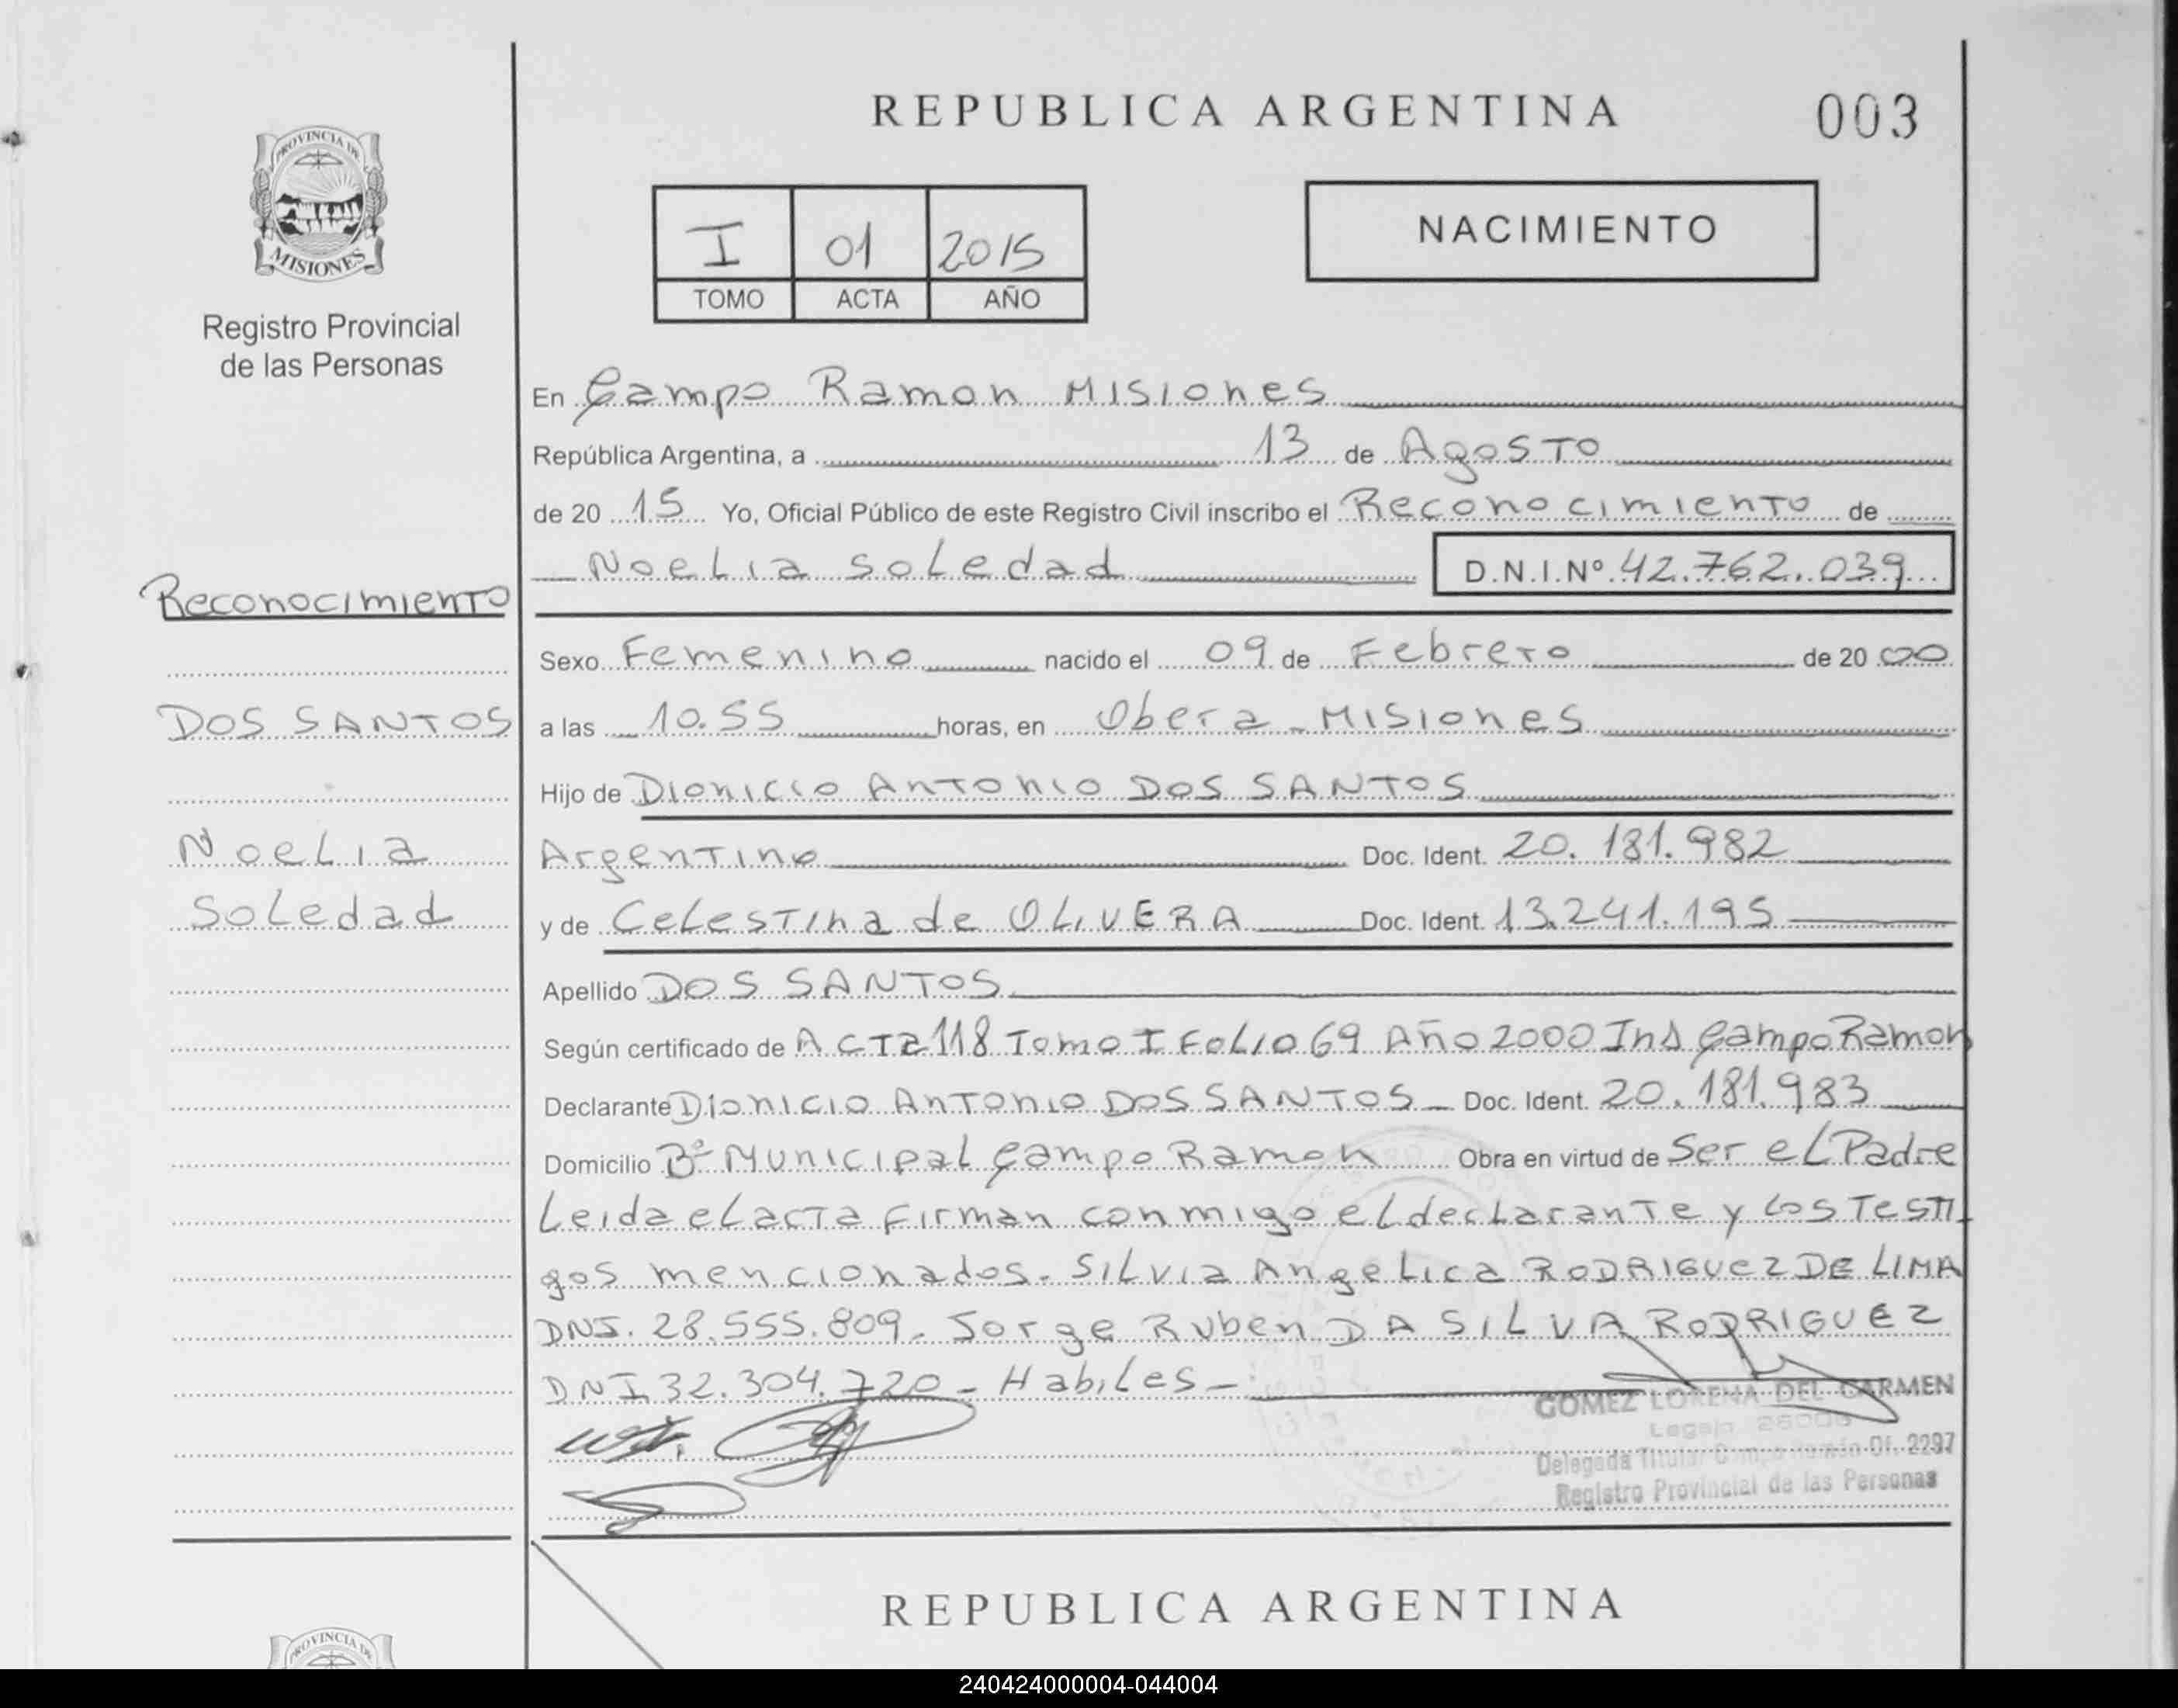 REPUBLICA ARGENTINA
003
PROVINCIA DE
MISIONES
Registro Provincial
de las Personas
I 01 2015
TOMO ACTA AÑO
NACIMIENTO
En Campo Ramon Misiones
República Argentina, a 13 de Agosto
de 20 15 Yo, Oficial Público de este Registro Civil inscribo el Reconocimiento de
Noelia Soledad D.N.I.Nº 42.762.039
Reconocimiento
DOS SANTOS
Noelia
Soledad
Sexo Femenino nacido el 09 de Febrero de 20 00
a las 10.55 horas, en Obera - Misiones
Hijo de Dionicio Antonio DOS SANTOS
Argentino Doc. Ident. 20.181.982
y de Celestina de OLIVERA Doc. Ident. 13.241.195
Apellido DOS SANTOS
Según certificado de Acta 118 Tomo I Folio 69 Año 2000 Campo Ramon
Declarante Dionicio Antonio DOS SANTOS Doc. Ident. 20.181.983
Domicilio Bº Municipal Campo Ramon Obra en virtud de Ser el Padre
Leida el acta firman conmigo el declarante y los testi
gos mencionados. Silvia Angelica RODRIGUEZ DE LIMA
DNI. 28.555.809. Jorge Ruben DA SILVA RODRIGUEZ
DNI 32.304.720 - Habiles -
GOMEZ LORENA DEL CARMEN
Legajo
Delegada Titular Campo Ramón Of. 2297
Registro Provincial de las Personas
REPUBLICA ARGENTINA
PROVINCIA DE
240424000004-044004